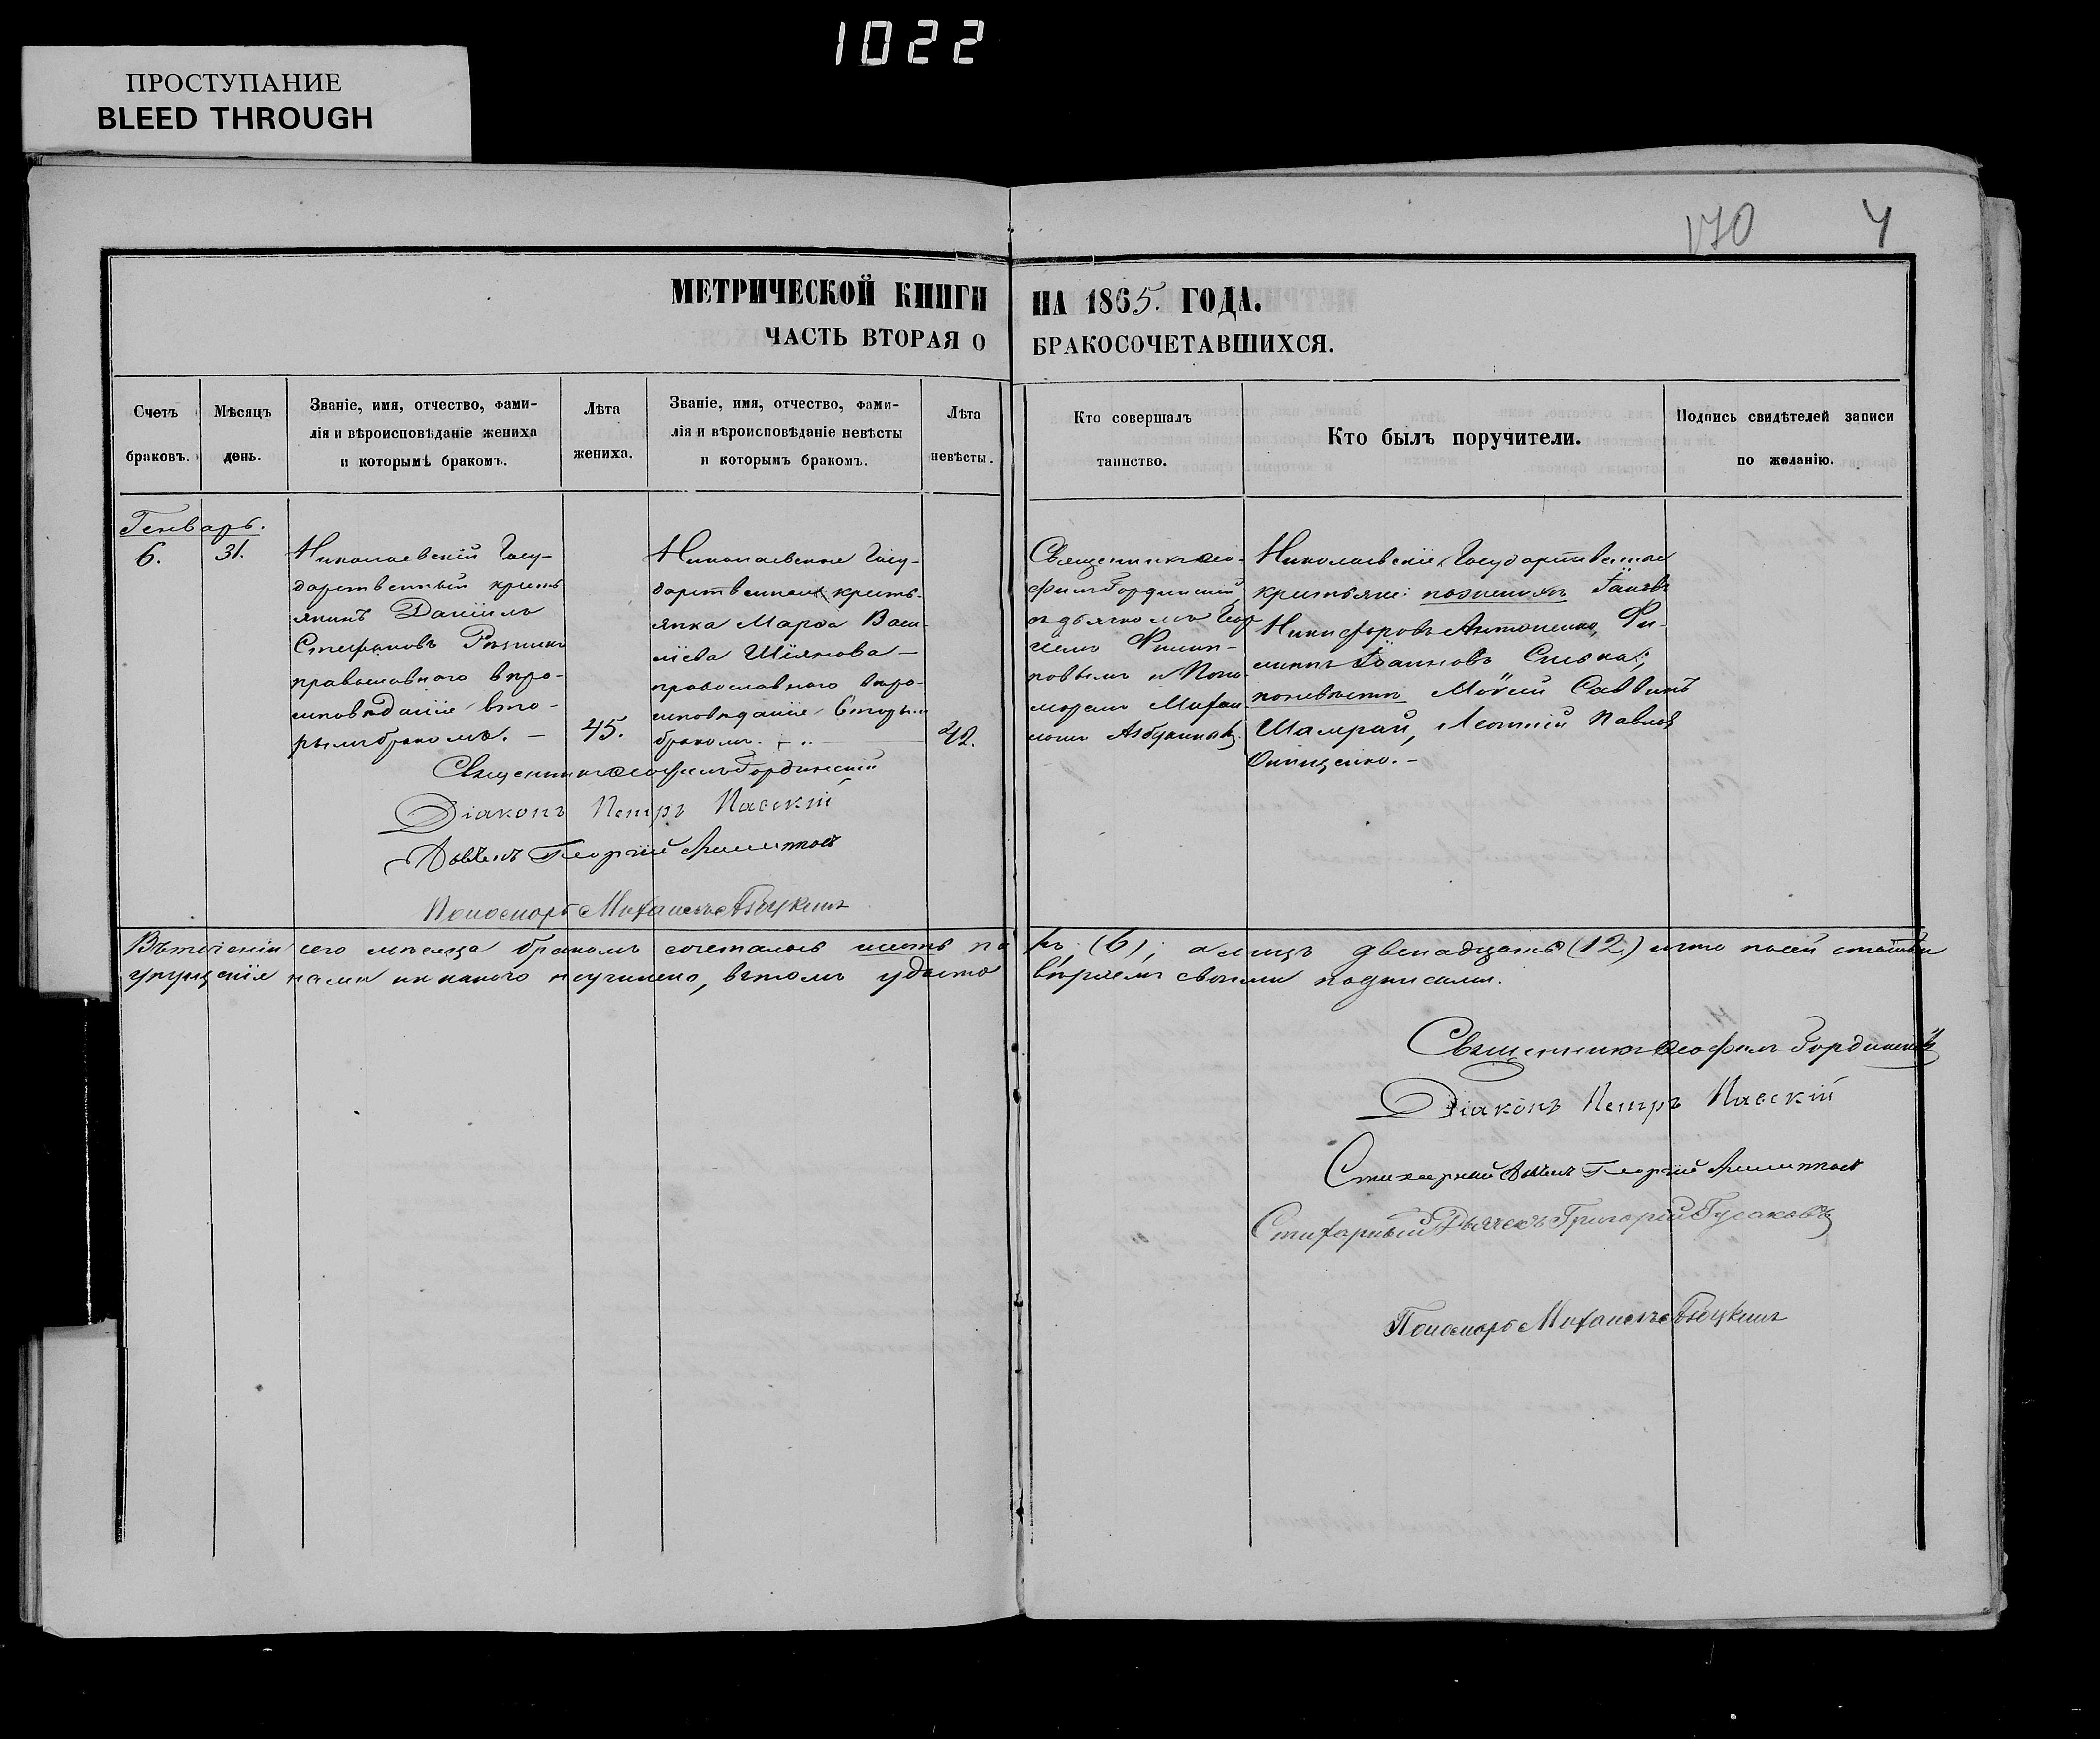 1022
ПРОСТУПАНИЕ
BLEED THROUGH
170 4
МЕТРИЧЕСКОЙ КНИГИ НА 1865. ГОДА.
ЧАСТЬ ВТОРАЯ О БРАКОСОЧЕТАВШИХСЯ.
Счетъ браковъ.
Мѣсяцъ день.
Званіе, имя, отчество, фами-
лія и вѣроисповѣданіе жениха
и которымъ бракомъ.
Лѣта жениха.
Званіе, имя, отчество, фами-
лія и вѣроисповѣданіе невѣсты
и которымъ бракомъ.
Лѣта невѣсты.
Кто совершалъ
таинство.
Кто былъ поручители.
Подпись свидѣтелей записи
по желанію.
Генварь.
6.
31.
Николаевскій Госу-
дарственный кресть
янинъ Даніилъ
Стефановъ
православнаго вѣро-
исповѣданія вто-
рымъ бракомъ. –
45.
Николаевская Госу-
дарственная кресть-
янка Марѳа Васи-
ліева Шіянова –
православнаго вѣро-
исповѣданія вторымъ
бракомъ.
42.
Священникъ Ѳео-
филъ Гординскій
съ дьячкомъ Геор
гіемъ Филип-
повымъ и Поно-
маремъ Михаи
ломъ
Николаевскіе Государственные
крестьяне: по женихѣ Іаковъ
Никифоровъ Антоненко, Фи-
липпъ Іоанновъ
по невѣстѣ Моѵсей Саввинъ
Шамрай, Леонтій Павловъ
Онищенко. –
Священникъ Ѳеофилъ Гординскій
Діаконъ Петръ Павскій
Дьячекъ Георгій Филипповъ
Пономарь Михаилъ
Въ теченіи сего мѣсяца бракомъ сочеталось шесть па ръ (6), а лицъ двенадцать (12) и что по сей статьѣ
упущенія нами никакого неучинено, въ томъ удосто вѣряемъ своими подписами.
Священникъ Ѳеофилъ Гординскій
Діаконъ Петръ Павскій
Стихарный Дьячекъ Георгій Филипповъ
Стихарный Дьячекъ Григорій Гусаковъ
Пономарь Михаилъ